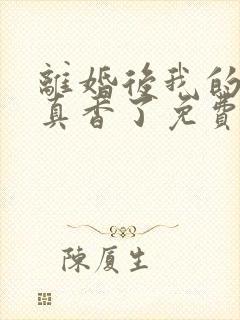 離婚後我的
真香了免費
陳厦生